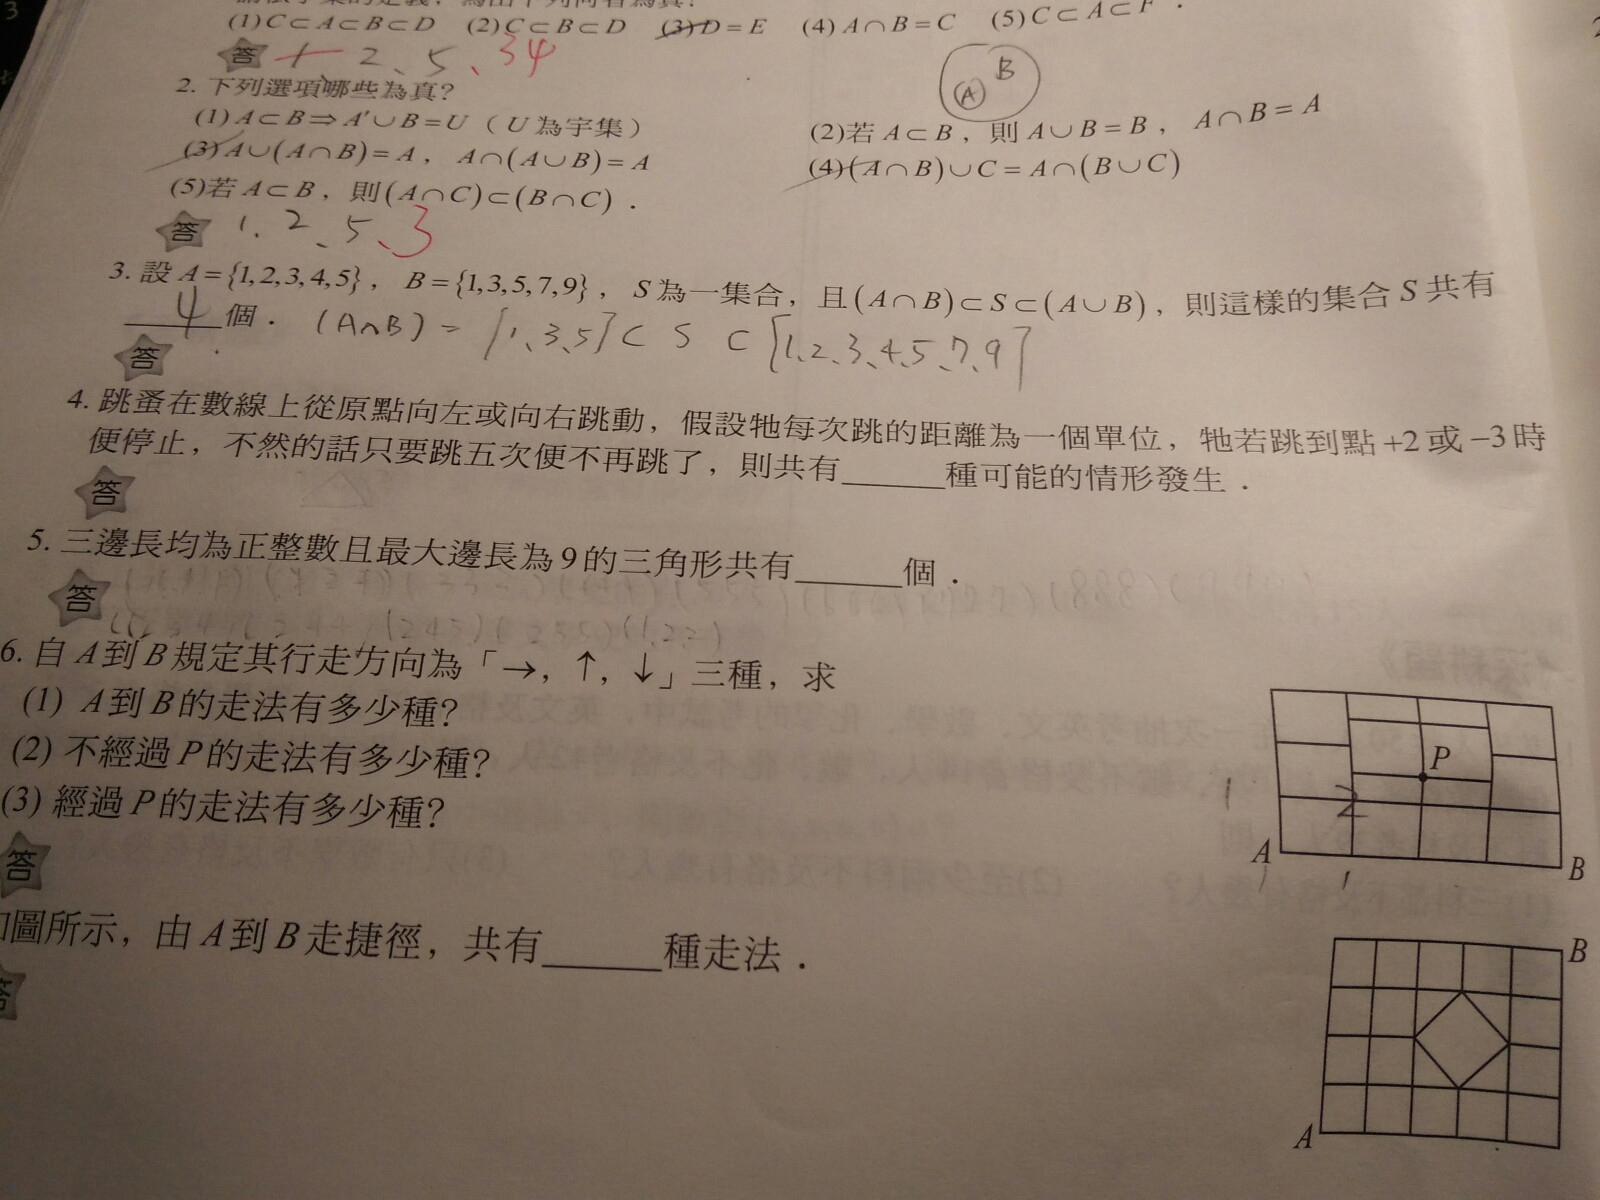 (1) C⊂A⊂B⊂D (2) C⊂B⊂D (3) D=E (4) A∩B=C (5) C⊂A⊂F .
答 1 2、5、34
B
A
2. 下列選項哪些為真?
(1) A⊂B⇒A'∪B=U ( U 為宇集 ) (2)若 A⊂B , 則 A∪B=B , A∩B=A
(3) A∪(A∩B)=A , A∩(A∪B)=A (4) (A∩B)∪C=A∩(B∪C)
(5)若 A⊂B , 則 (A∩C)⊂(B∩C) .
答 1、2、5、3
3. 設 A={1,2,3,4,5} , B={1,3,5,7,9} , S 為一集合, 且 (A∩B)⊂S⊂(A∪B) , 則這樣的集合 S 共有
4 個 . (A∩B) = {1、3、5} ⊂ S ⊂ {1、2、3、4、5、7、9}
答
4. 跳蚤在數線上從原點向左或向右跳動, 假設牠每次跳的距離為一個單位, 牠若跳到點 +2 或 −3 時
便停止, 不然的話只要跳五次便不再跳了, 則共有______種可能的情形發生 .
答
5. 三邊長均為正整數且最大邊長為 9 的三角形共有______個 .
答
6. 自 A 到 B 規定其行走方向為「→, ↑, ↓」三種, 求
(1) A 到 B 的走法有多少種?
(2) 不經過 P 的走法有多少種?
(3) 經過 P 的走法有多少種?
P
1 2
A B
1 1
答
圖所示, 由 A 到 B 走捷徑, 共有______種走法 .
B
答
A